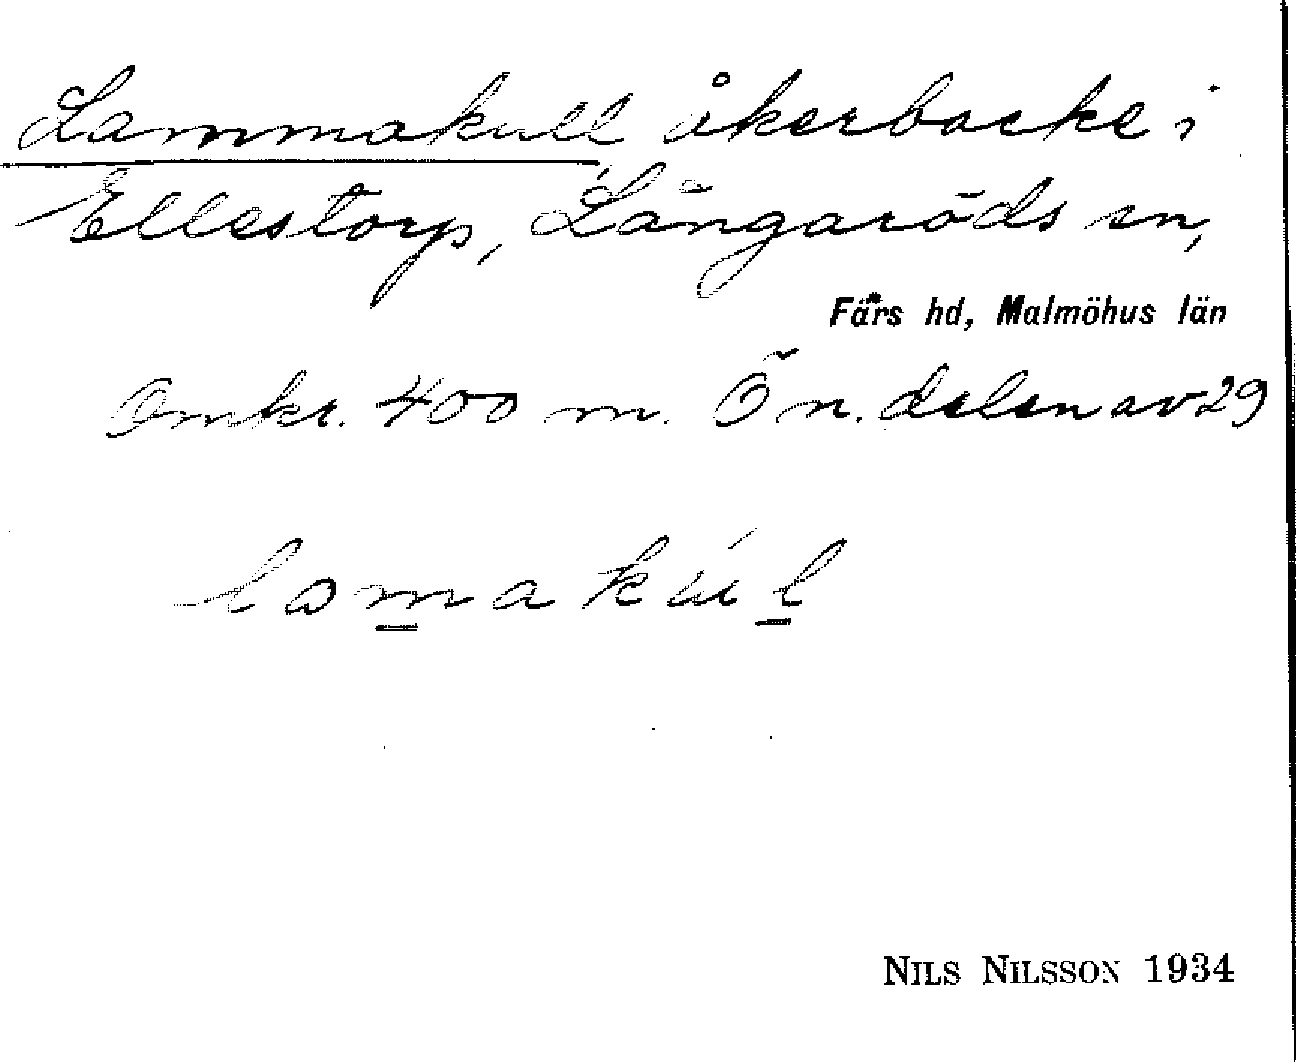 Lammakull åkerbacke i
Ellestorp, Långaröds sn,
Färs hd, Malmöhus län
Omkr. 400 m. Ö n. delen av 29
lamakúl
NILS NILSSON 1934